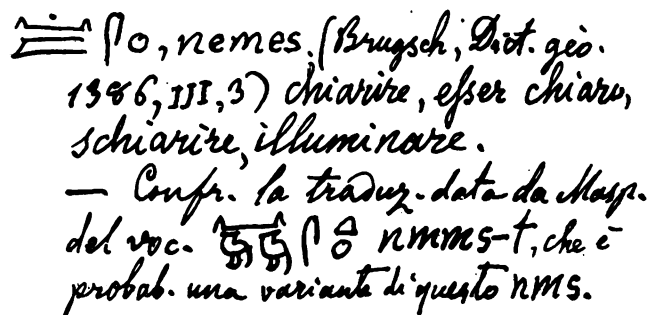 nemes. (Brugsch, Dict. géo.
1386, III, 3) chiarire, esser chiaro,
schiarire, illuminare.
— Confr. la traduz. data da Masp.
del voc. nmms-t, che è
probab. una variante di questo nms.